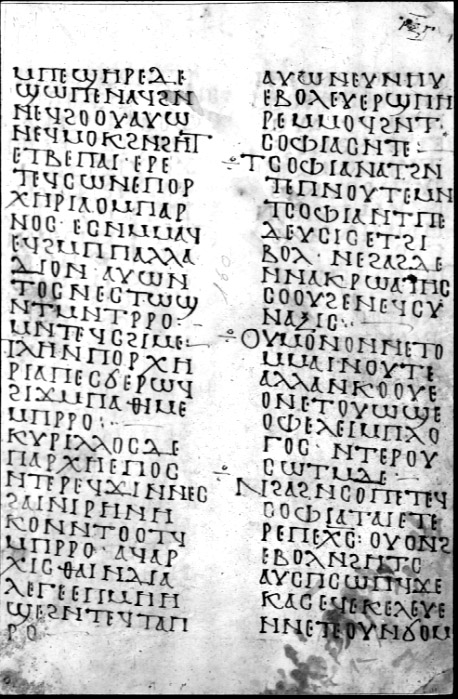 ⲙⲡⲉϣⲏⲣⲉⲇⲉ
ϣⲱⲡⲉⲛⲁϥϩⲛ
ⲛⲉϥϩⲟⲟⲩⲁⲩⲱ
ⲛⲉϥⲙⲟⲕϩⲛϩⲏⲧ
ⲉⲧⲃⲉⲡⲁⲓ· ⲉⲣⲉ
ⲧⲉϥⲥⲱⲛⲉⲡⲟⲣ
ⲭⲏⲣⲓⲁⲟⲙⲡⲁⲣ
ⲛⲟⲥ· ⲉⲥⲛⲙⲙⲁϥ
ⲉϥϩⲙⲡⲡⲁⲗⲗⲁ
ⲇⲓⲟⲛ· ⲁⲩⲱⲛ
ⲧⲟⲥⲛⲉⲥⲧⲱϣ
ⲛⲧⲙⲛⲧⲣⲣⲟ:
ⲙⲛⲧⲉϥⲥϩⲓⲙⲉ:
ⲡⲗⲏⲛⲡⲟⲣⲭⲏ
ⲣⲓⲁⲡⲉⲥϭⲉⲣⲱϥ
ϩⲓϫⲙⲡⲁⲑⲓⲙⲉ
ⲙⲡⲣⲣⲟ:
ⲕⲩⲣⲓⲗⲗⲟⲥⲇⲉ
ⲡⲁⲣⲭⲏⲉⲡⲟⲥ
ⲛⲧⲉⲣⲉϥϫⲓⲛⲛⲉⲥ
ϩⲁⲓⲛⲓⲣⲏⲛⲏ
ⲕⲟⲛⲛⲧⲟⲟⲧϥ
ⲙⲡⲣⲣⲟ· ⲁϥⲁⲣ
ⲭⲓⲥ·ⲑⲁⲓⲛⲇⲓⲁ
ⲗⲉⲅⲉⲉⲡⲙⲏⲏ
ϣⲉϩⲛⲧⲉϥⲧⲁⲡ
ⲣⲟ
ⲁⲩⲱⲛⲉⲩⲛⲏⲩ
ⲉⲃⲟⲗⲉⲩⲉⲣϣⲡⲏ
ⲣⲉⲙⲙⲟϥϩⲛⲧ
ⲥⲟⲫⲓⲁⲥⲛⲧⲉ:
ⲧⲥⲟⲫⲓⲁⲛⲁⲧϩⲛ
ⲧⲉⲡⲛⲟⲩⲧⲉⲙⲛ
ⲧⲥⲟⲫⲓⲁⲛⲧⲡⲉ
ⲗⲉⲩⲥⲓⲥⲉⲧϩⲓ
ⲃⲟⲗ· ⲛⲉϩⲁϩⲇⲉ
ⲛⲛⲁⲕⲣⲱⲁⲧⲏⲥ
ⲥⲟⲟⲩϩⲉⲛⲉϥⲥⲩ
ⲛⲁⲝⲓⲥ:
ⲟⲩⲙⲟⲛⲟⲛⲛⲉⲧⲟ
ⲙⲙⲁⲓⲛⲟⲩⲧⲉ
ⲁⲗⲗⲁⲛⲕⲟⲟⲩⲉ
ⲟⲛⲉⲧⲟⲩⲱϣⲉ
ⲟⲫⲉⲗⲉⲓⲙⲡⲗⲟ
ⲅⲟⲥ· ⲛⲧⲉⲣⲟⲩ
ⲥⲱⲧⲙⲇⲉ
ⲛϭⲓϩⲁϩⲛⲥⲟⲡⲉⲧⲉϥ
ⲥⲟⲫⲓⲁⲧⲁⲓⲉⲧⲉ
ⲣⲉⲡⲉⲭⲥ: ⲟⲩⲟⲛϩ
ⲉⲃⲟⲗⲛϩⲏⲧⲥ
ⲁⲩⲥⲡⲥⲱⲡϥϫⲉ
ⲕⲁⲥⲉϥⲉⲕⲉⲗⲉⲩⲉ
ⲛⲛⲉⲧⲉⲟⲩⲛϭⲟⲙ